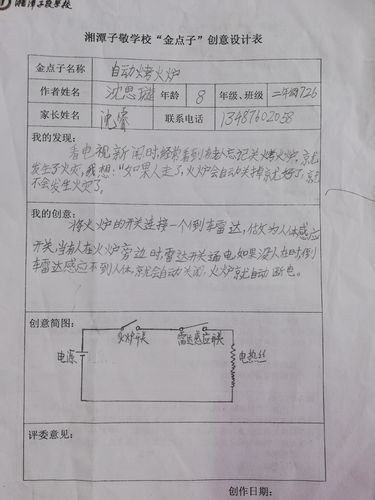 湘潭子敬学校
湘潭子敬学校“金点子”创意设计表
金点子名称 自动烤火炉
作者姓名 沈思璇 年龄 8 年级、班级 二年级1726
家长姓名 沈睿 联系电话 13487602058
我的发现：
看电视新闻时经常看到有老人忘记关烤火炉，就
发生了火灾，我想：“如果人走了，火炉会自动关掉就好了，就
不会发生火灾了。
我的创意：
将火炉的开关连接一个倒车雷达，做为人体感应
开关，当有人在火炉旁边时，雷达开关通电，如果没人在时，倒
车雷达感应不到人体，就会自动关闭，火炉就自动断电。
创意简图：
火炉开关 雷达感应开关
电源 电热丝
评委意见：
创作日期：